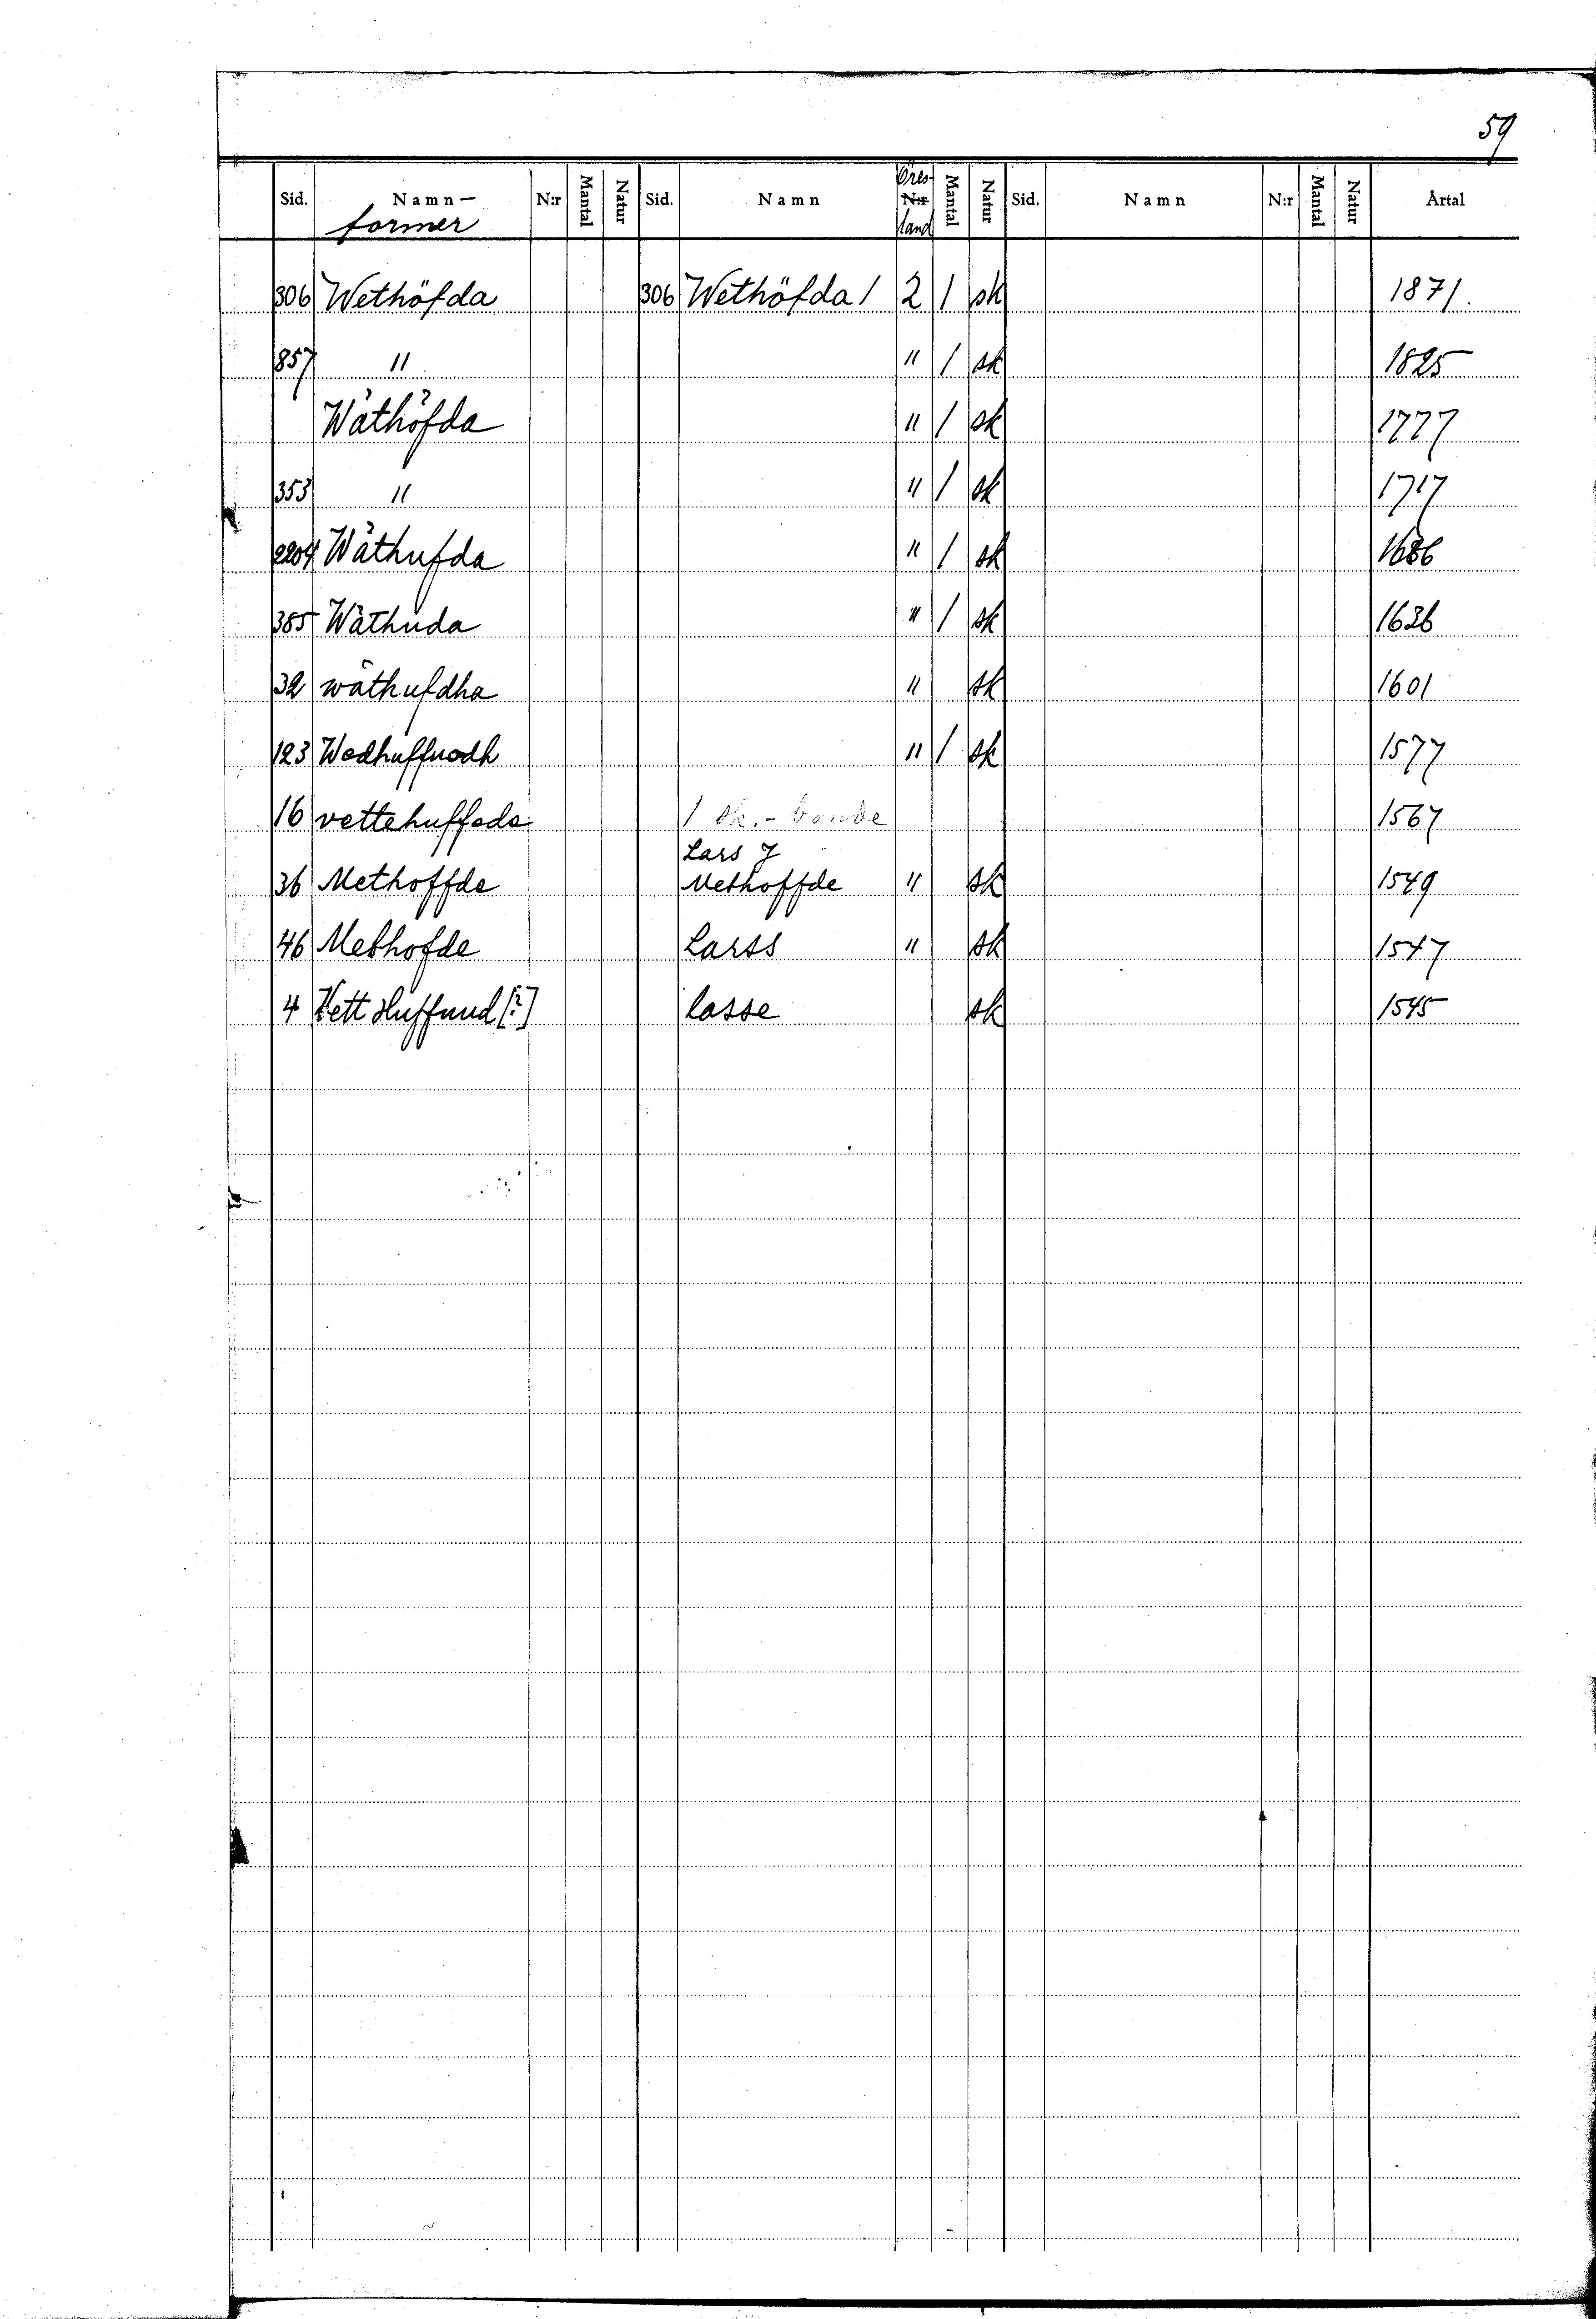 59
Sid. Namn- former N:r Mantal Natur Sid. Namn Öres- N:r land Mantal Natur Sid. Namn N:r Mantal Natur Årtal
306 Wethöfda 306 Wethöfda 1 2 1 sk 1871.
857 " " 1 sk 1825
Wäthöfda " 1 sk 1777
353 " " 1 sk 1717
2204 Wäthufda " 1 sk 1686
385 Wäthuda " 1 sk 1636
32 wäthufdha " sk 1601
123 Wedhuffuodh " 1 sk 1577
16 vettehuffode 1 sk.-bonde 1567
Lars J
36 Methoffde Methoffde " sk 1549
46 Methofde Larss " sk 1547
4 Vett Huffuud [?] lasse sk 1545